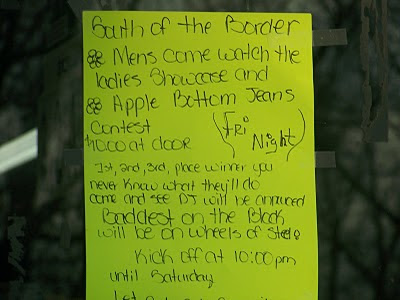 South of the Border
Mens come watch the
ladies Showcase and
Apple Bottom Jeans
Contest
$10.00 at door
(Fri Night)
1st, 2nd, 3rd, place winner you
never know what they'll do
come and see DJ will be announced
Baddest on the Block
will be on wheels of Steele
Kick off at 10:00pm
until Saturday